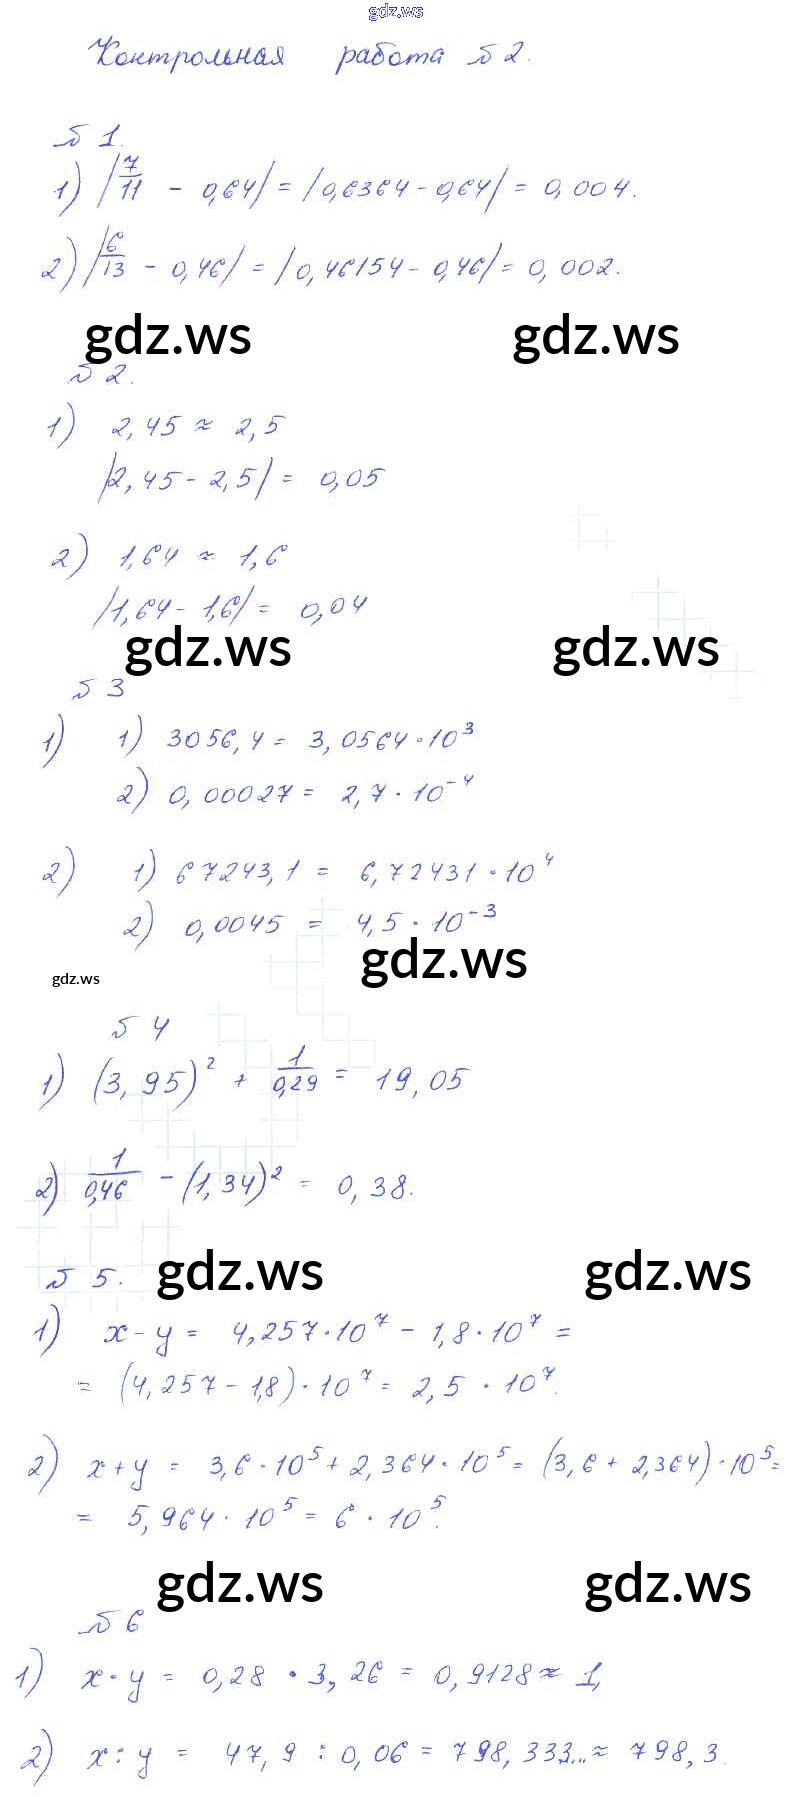 gdz.ws
Контрольная работа №2.
№ 1.
1) |7/11 - 0,64| = |0,6364 - 0,64| = 0,004.
2) |6/13 - 0,46| = |0,46154 - 0,46| = 0,002.
gdz.ws gdz.ws
№ 2.
1) 2,45 ≈ 2,5
|2,45 - 2,5| = 0,05
2) 1,64 ≈ 1,6
|1,64 - 1,6| = 0,04
gdz.ws gdz.ws
№ 3
1) 1) 3056,4 = 3,0564·10³
2) 0,00027 = 2,7·10⁻⁴
2) 1) 67243,1 = 6,72431·10⁴
2) 0,0045 = 4,5·10⁻³
gdz.ws
gdz.ws
№ 4
1) (3,95)² + 1/0,29 = 19,05
2) 1/0,46 - (1,34)² = 0,38.
gdz.ws gdz.ws
№ 5.
1) x - y = 4,257·10⁷ - 1,8·10⁷ =
= (4,257 - 1,8)·10⁷ = 2,5·10⁷.
2) x + y = 3,6·10⁵ + 2,364·10⁵ = (3,6 + 2,364)·10⁵ =
= 5,964·10⁵ = 6·10⁵.
gdz.ws gdz.ws
№ 6
1) x·y = 0,28·3,26 = 0,9128 ≈ 1,
2) x : y = 47,9 : 0,06 = 798,333... ≈ 798,3.